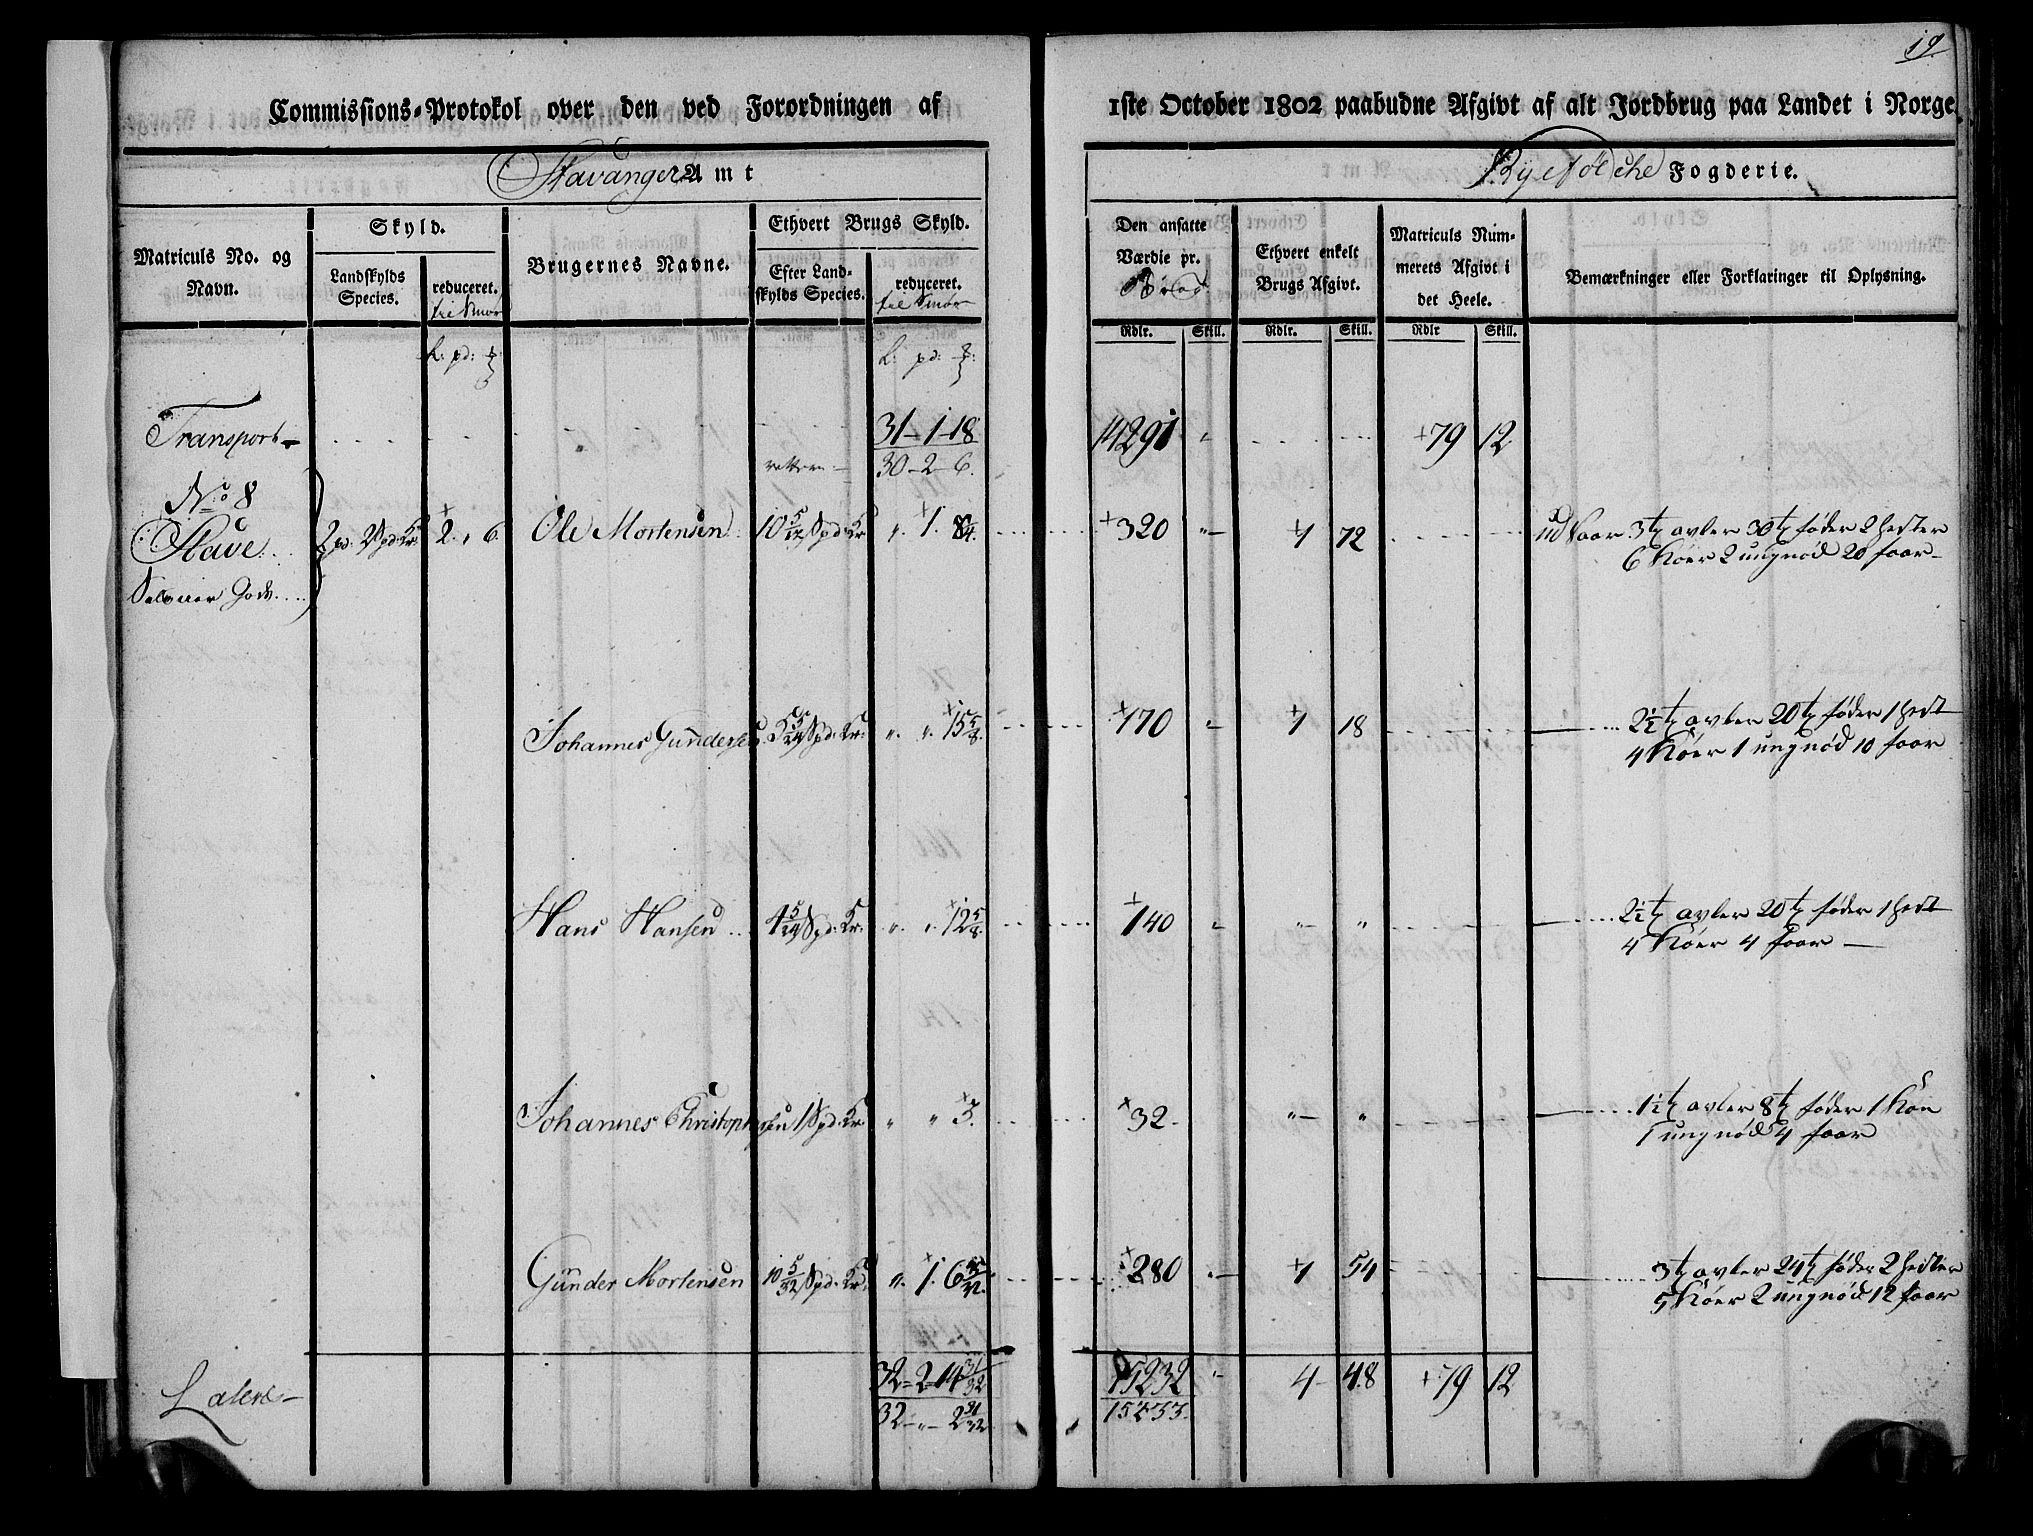 19
Commissions-Protokol over den ved Forordningen af 1ste October 1802 paabudne Afgivt af alt Jordbrug paa Landet i Norge
Stavanger Amt
Ryefölche Fogderie.
Matriculs No. og Navn.
Skyld.
Landskylds Species.
reduceret.
til Smör
Brugernes Navne.
Ethvert Brugs Skyld.
Efter Landskylds Species.
reduceret.
til Smör
Den ansatte Værdie pr.
Ethvert enkelt Brugs Afgivt.
Matriculs Nummerets Afgivt i det Heele.
Bemærkninger eller Forklaringer til Oplysning.
Rdlr. Skill. Rdlr. Skill. Rdlr Skill.
Transport 31-1-18 14291 " 79 12
30-2-6.
No 8
Have
Ole Mortensen 10 5/12 Spd: Kr " 1. 320 " 1 72 3 t avler 30 t föder 2 Hester
6 Köer 2 ungnöd 20 faar
Johannes Gundersen 5 5/24 Spd: Kr: " " 15 5/8. 170 " 1 18 2½ t avler 20 t föder 1 Hest
4 Köer 1 ungnöd 10 faar
Hans Hansen 4 5/24 Spd: Kr: " " 12 5/8. 140 " " " 2½ t avler 20 t föder 1 Hest
4 Köer 4 faar
Johannes Christophersen 1 Spd: Kr: " " 3. 32. " " 1½ t avler 8 t föder 1 Koe
1 ungnöd 4 faar
Gunder Mortensen 10 5/32 Spd: Kr: " 1. 6 280 " 1 54 3 t avler 24 t föder 2 Hester
5 Köer 2 ungnöd 12 faar
Latere 32-2-14 31/32 15232 " 4 48 79 12
32-"-2 31/32 15233.